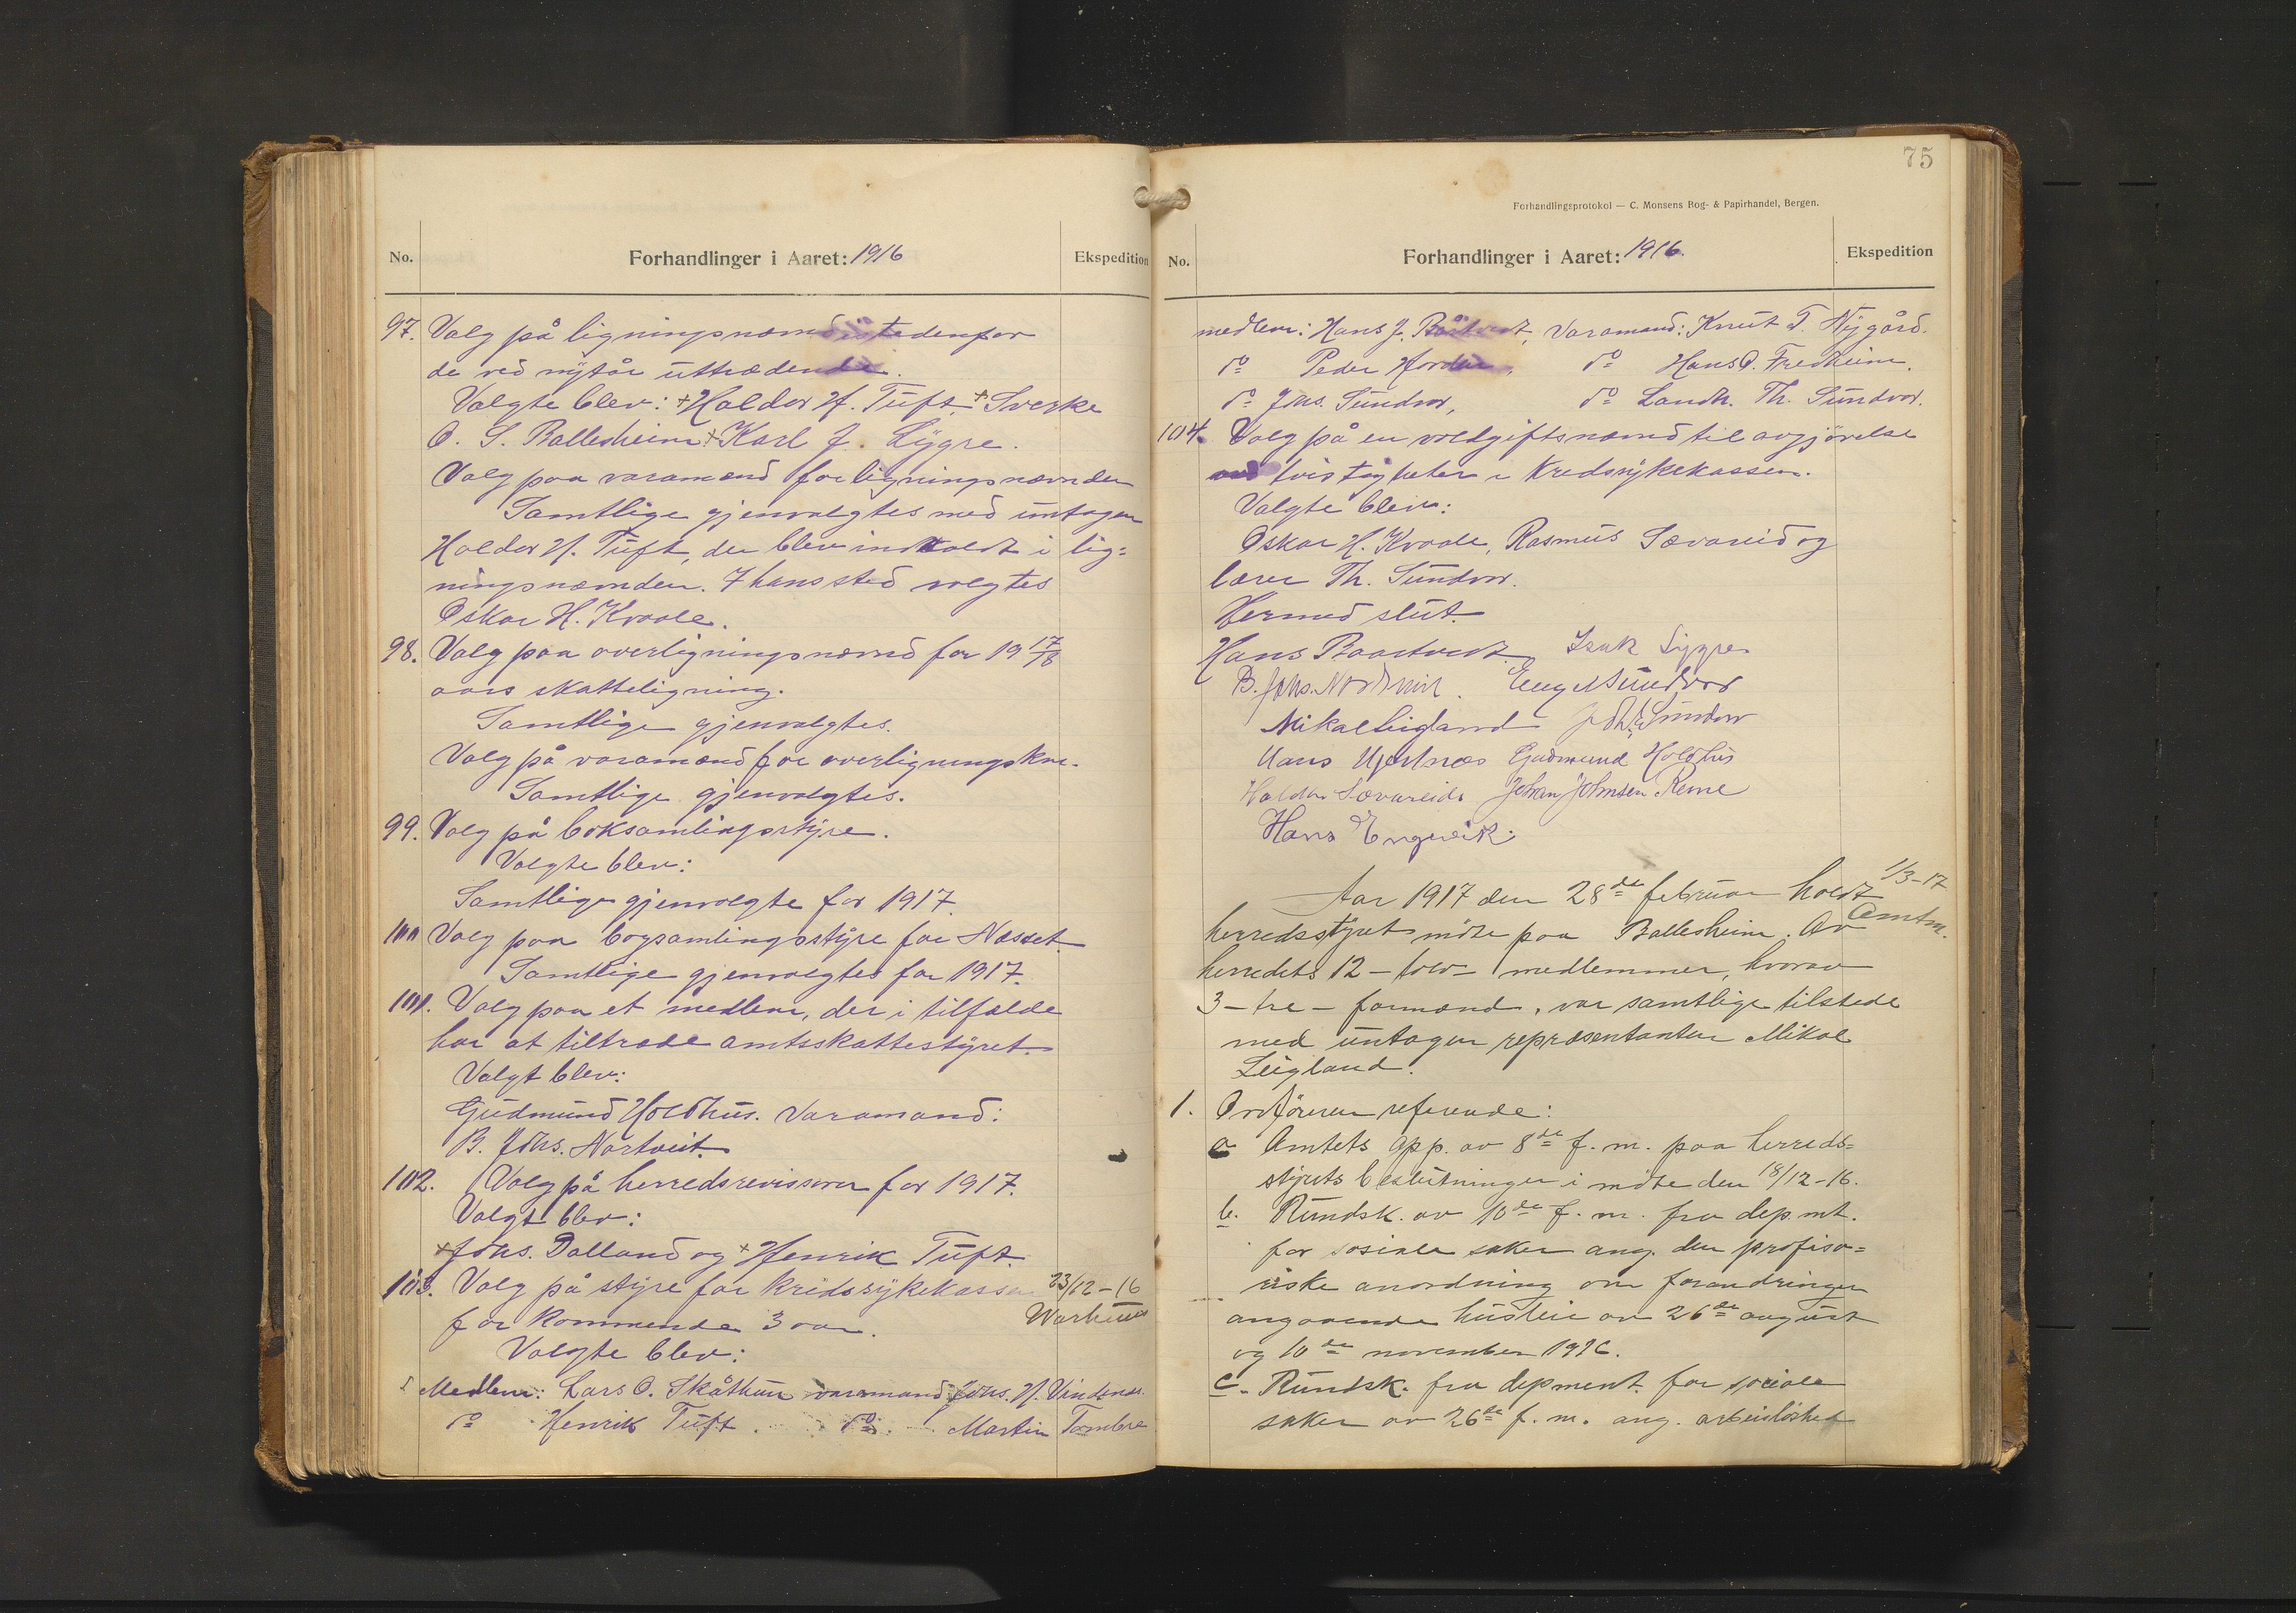 No.
Forhandlinger i Aaret: 1916
Ekspedition
97. Valg på ligningsnemnd istedenfor
de ved nytår uttrædende.
Valgte blev: +Haldor H. Tuft, +Sverke
O. S. Ballesheim +Karl J. Lygre.
Valg paa varamænd for ligningsnævnden
Samtlige gjenvalgtes med untagen
Haldor H. Tuft, der blev indvaldt i lig=
ningsnæmnden. I hans sted valgtes
Oskar H. Kvaale.
98. Valg paa overligningsnemnd for 19 17/18
aars skatteligning.
Samtlige gjenvalgtes.
Valg på varamænd for overligningskm.
Samtlige gjenvalgtes.
99. Valg på boksamlingsstyre.
Valgte blev:
Samtlige gjenvalgte for 1917.
100 Valg paa bogsamlingsstyre for Næsset
Samtlige gjenvalgtes for 1917.
101. Valg paa et medlem, der i tilfælde
har at tiltræde amtsskattestyret.
Valgt blev:
Gudmund Holdhus. Varamand:
B. Johs. Nortveit.
102. Valg på herredsrevisorer for 1917.
Valgt blev:
+Johs. Dalland og +Henrik Tuft.
103. Valg på styre for kredssykekassen 23/12-16
for kommende 3 aar.
Valgte blev:
Medlem: Lars O. Skåthun varamand Johs. H. Vindenes
do Henrik Tuft. do. Martin Tombre
75
Forhandlingsprotokol — C. Monsens Bog- & Papirhandel, Bergen.
No.
Forhandlinger i Aaret: 1916.
Ekspedition
medlem: Hans J. Båtvedt, Varamand: Knut T. Nygård.
do Peder , do Hans O. Fredheim.
do Johs. Sundvor, do Landh. Th. Sundvor.
104. Valg på en voldgiftsnemnd til avgjørelse
ved tvistigheter i Kredssykekassen.
Valgte blev:
Oskar H. Kvaale, Rasmus Sævareid og
lærer Th. Sundvor.
Hermed slut.
Hans Baatvedt. Isak Lygre
B. Johs. Nordtveit. Engel Sundvor
Mikal Leigland Joh. E. Sundvor
Hans Hjertnæs Gudmund Holdhus
Haldor Sævareid. Johan Johnsen Reme
Hans Engevik.
Aar 1917 den 28de februar holdt 1/3-17
herredsstyret møte paa Ballesheim. Av Amtm.
herredets 12 - tolv - medlemmer, hvorav
3 - tre - formænd, var samtlige tilstede
med untagen repræsentanten Mikal
Leigland.
1. Ordføreren refererede:
a Amtets app. av 8de f. m. paa herreds=
styrets beslutninger i møte den 18/12-16.
b. Rundsk. av 10de f. m. fra dep.mt.
for sosiale saker ang. den profiso=
riske anordning om forandringer
angaaende husleie av 26de august
og 10de november 1916.
c. Rundsk. fra depment. for sociale
saker av 26de f. m. ang. arbeisløshed